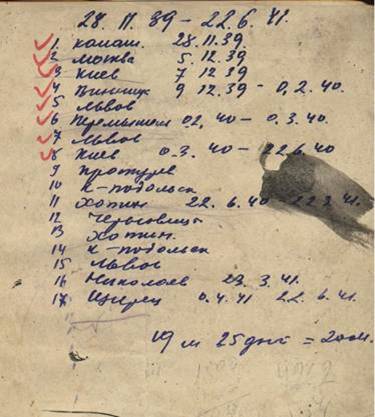 28. 11. 39 – 22. 6. 41.
1. 28.11.39
2 москва 5. 12. 39
3 киев 7 12. 39
4 9 12. 39 - 0,2. 40.
5 львов
6 Перемышль 0.2. 40 – 0. 3. 40.
7 львов
8 киев 0. 3. 40 – 22.6.40
9
10 к-подольск
11 хотин 22. 6. 40
12
13 хотин.
14 к-подольск
15 львов
16 Николаев 23. 3. 41.
17 Щирец 0. 4. 41 22. 6. 41.
19 м 25 дн = 20 м.